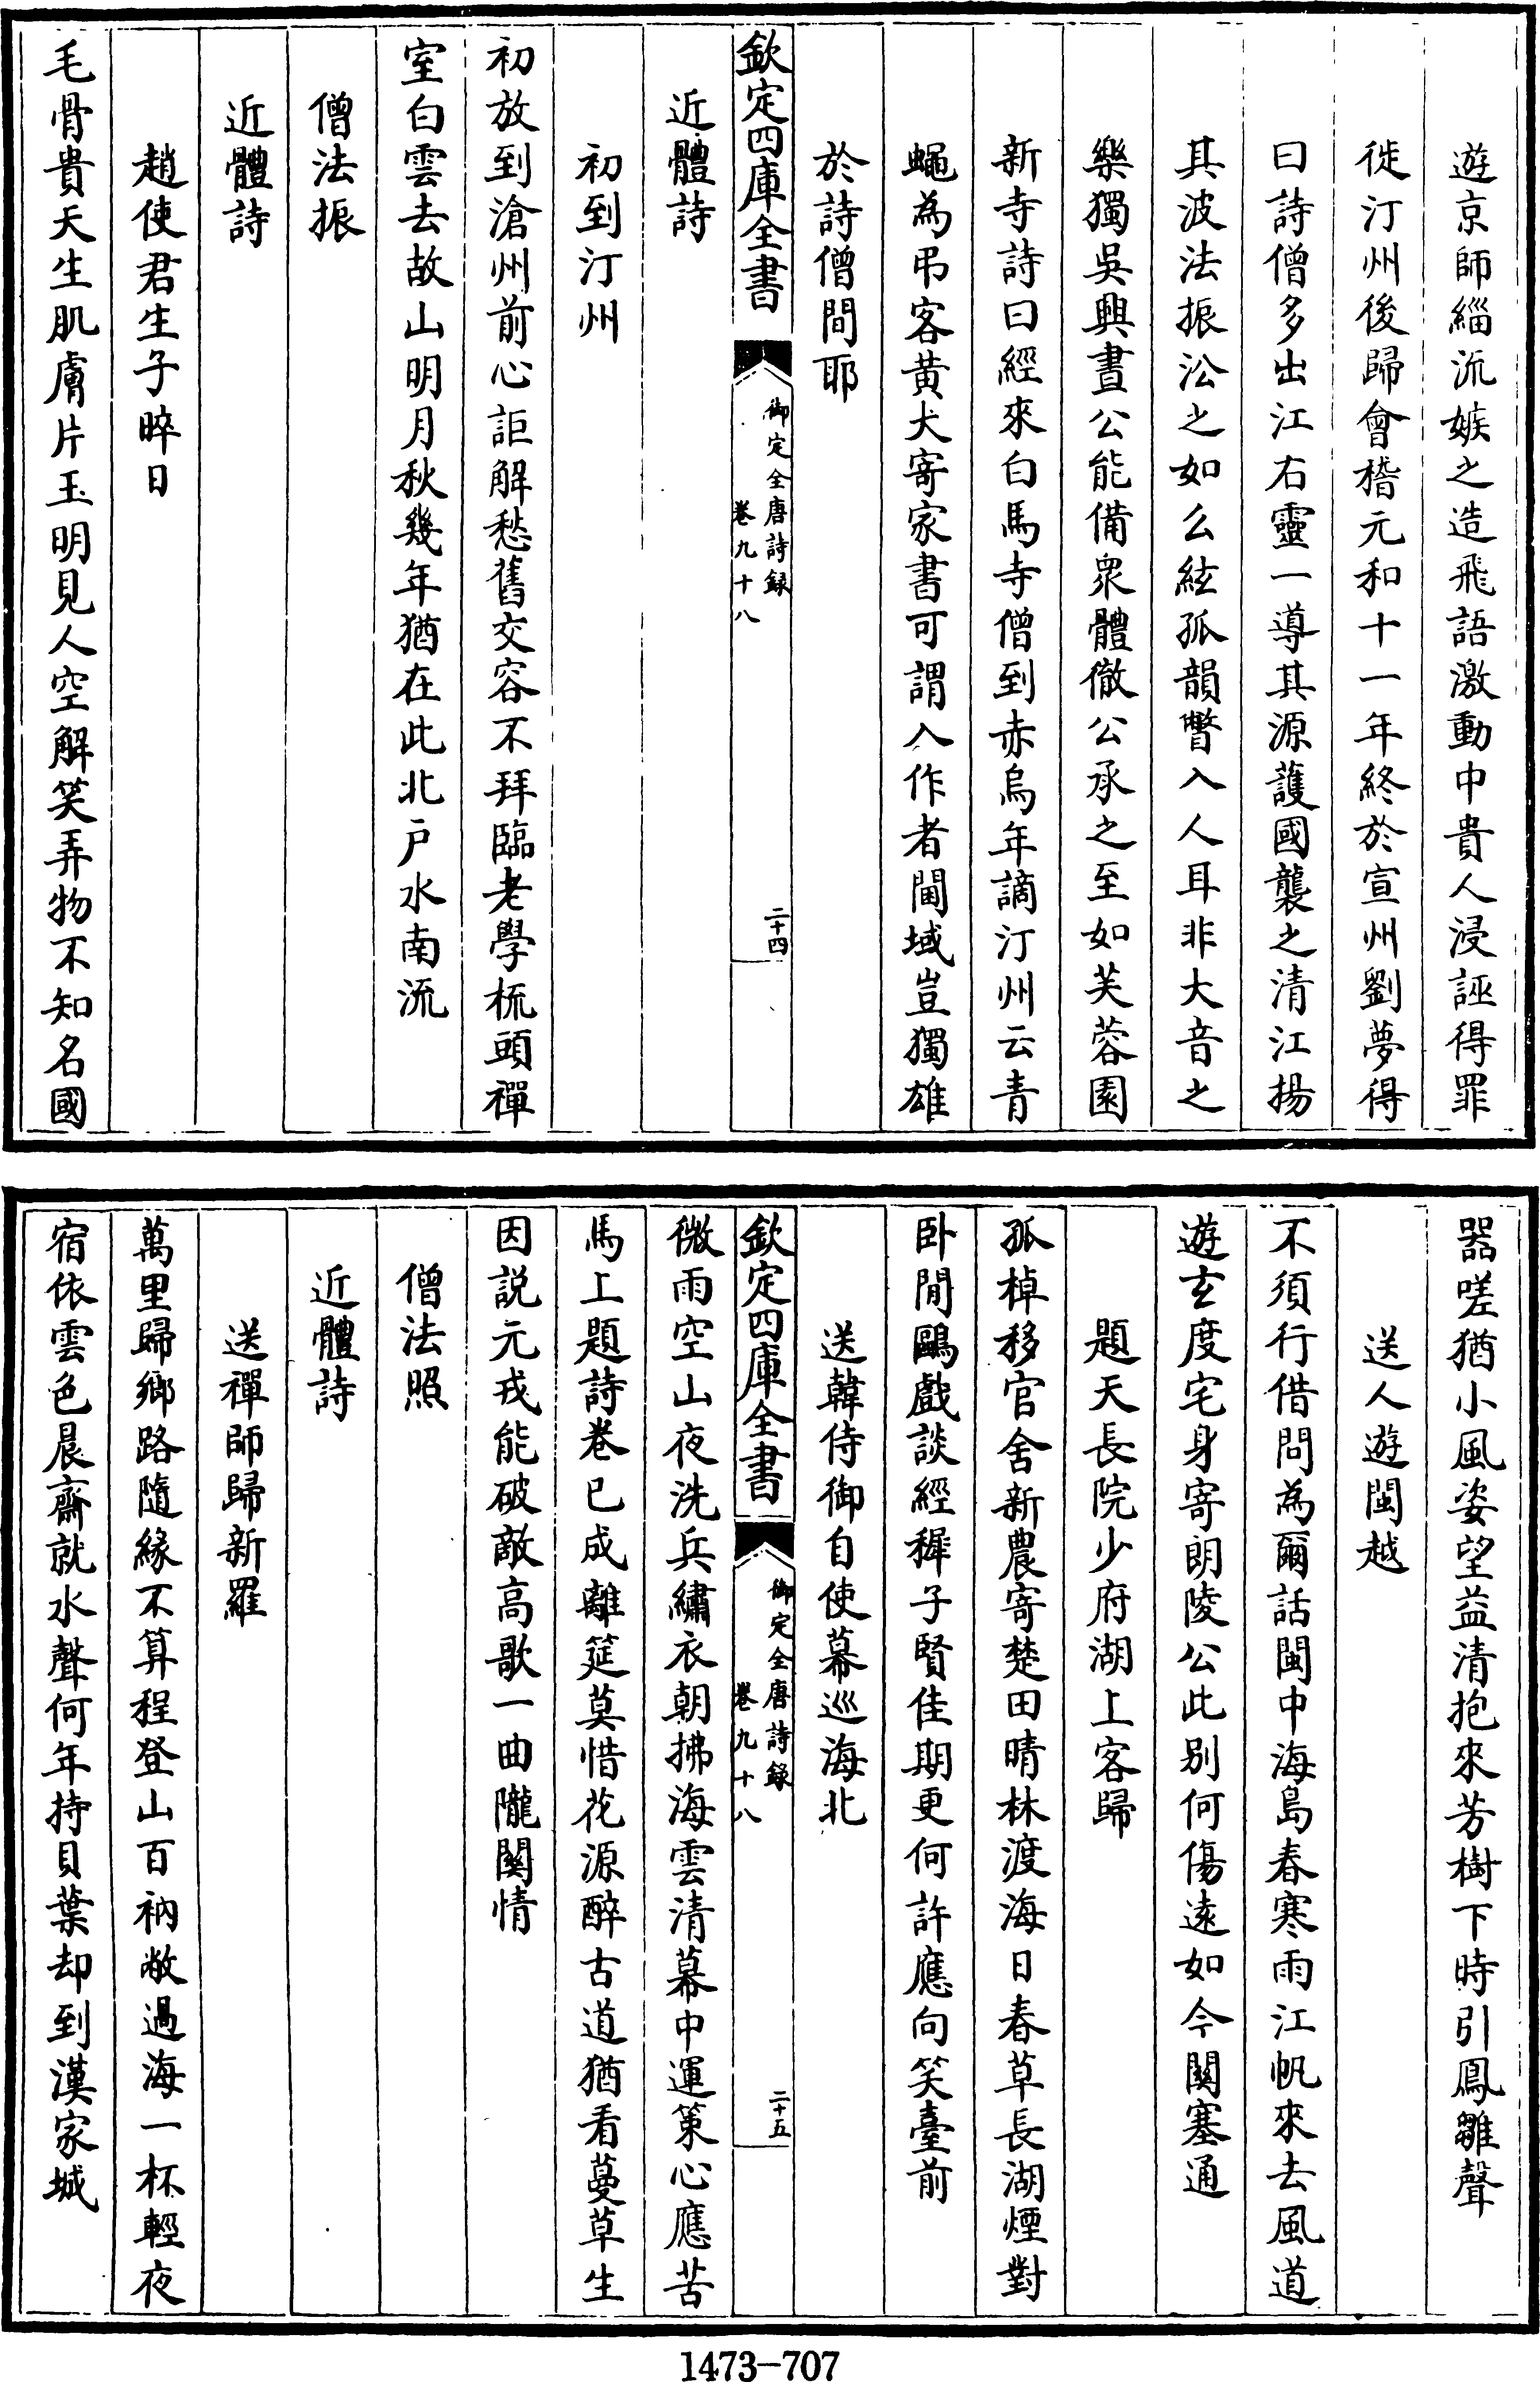 遊京師緇流嫉之造飛語激動中貴人浸誣得罪
徙汀州後歸會稽元和十一年終於宣州劉夢得
曰詩僧多出江右靈一導其源護國襲之清江揚
其波法振㳂之如么絃孤韻瞥入人耳非大音之
樂獨吳興晝公能備衆體徹公承之至如芙蓉園
新寺詩曰經來白馬寺僧到赤烏年謫汀州云青
蠅為弔客黄犬寄家書可謂入作者閫域豈獨雄
於詩僧間耶
欽定四庫全書
御定全唐詩錄
卷九十八
二十四
近體詩
初到汀州
初放到滄州前心詎解愁舊交容不拜臨老學梳頭禪
室白雲去故山明月秋幾年猶在此北户水南流
僧法振
近體詩
趙使君生子晬日
毛骨貴天生肌膚片玉明見人空解笑弄物不知名國
器嗟猶小風姿望益清抱來芳樹下時引鳳雛聲
送人遊閩越
不須行借問為爾話閩中海島春寒雨江帆來去風道
遊玄度宅身寄朗陵公此别何傷遠如今關塞通
題天長院少府湖上客歸
孤棹移官舍新農寄楚田晴林渡海日春草長湖煙對
卧閒鷗戲談經穉子賢佳期更何許應向笑臺前
送韓侍御自使幕巡海北
欽定四庫全書
御定全唐詩錄
卷九十八
二十五
微雨空山夜洗兵繡衣朝拂海雲清幕中運策心應苦
馬上題詩卷已成離筵莫惜花源醉古道猶看蔓草生
因説元戎能破敵高歌一曲隴關情
僧法照
近體詩
送禪師歸新羅
萬里歸鄉路隨緣不算程登山百衲敝過海一杯輕夜
宿依雲色晨齋就水聲何年持貝葉却到漢家城
1473-707